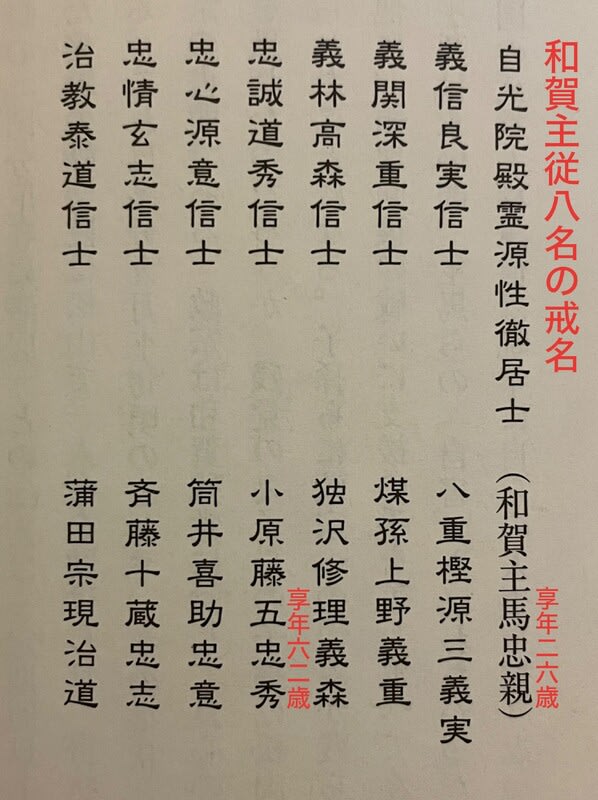 和賀主従八名の戒名
自光院殿霊源性徹居士 (和賀主馬忠親)
享年二六歳
義信良実信士 八重樫源三義実
義関深重信士 煤孫上野義重
義林高森信士 独沢修理義森
享年六二歳
忠誠道秀信士 小原藤五忠秀
忠心源意信士 筒井喜助忠意
忠情玄志信士 斉藤十蔵忠志
治教泰道信士 蒲田宗現治道